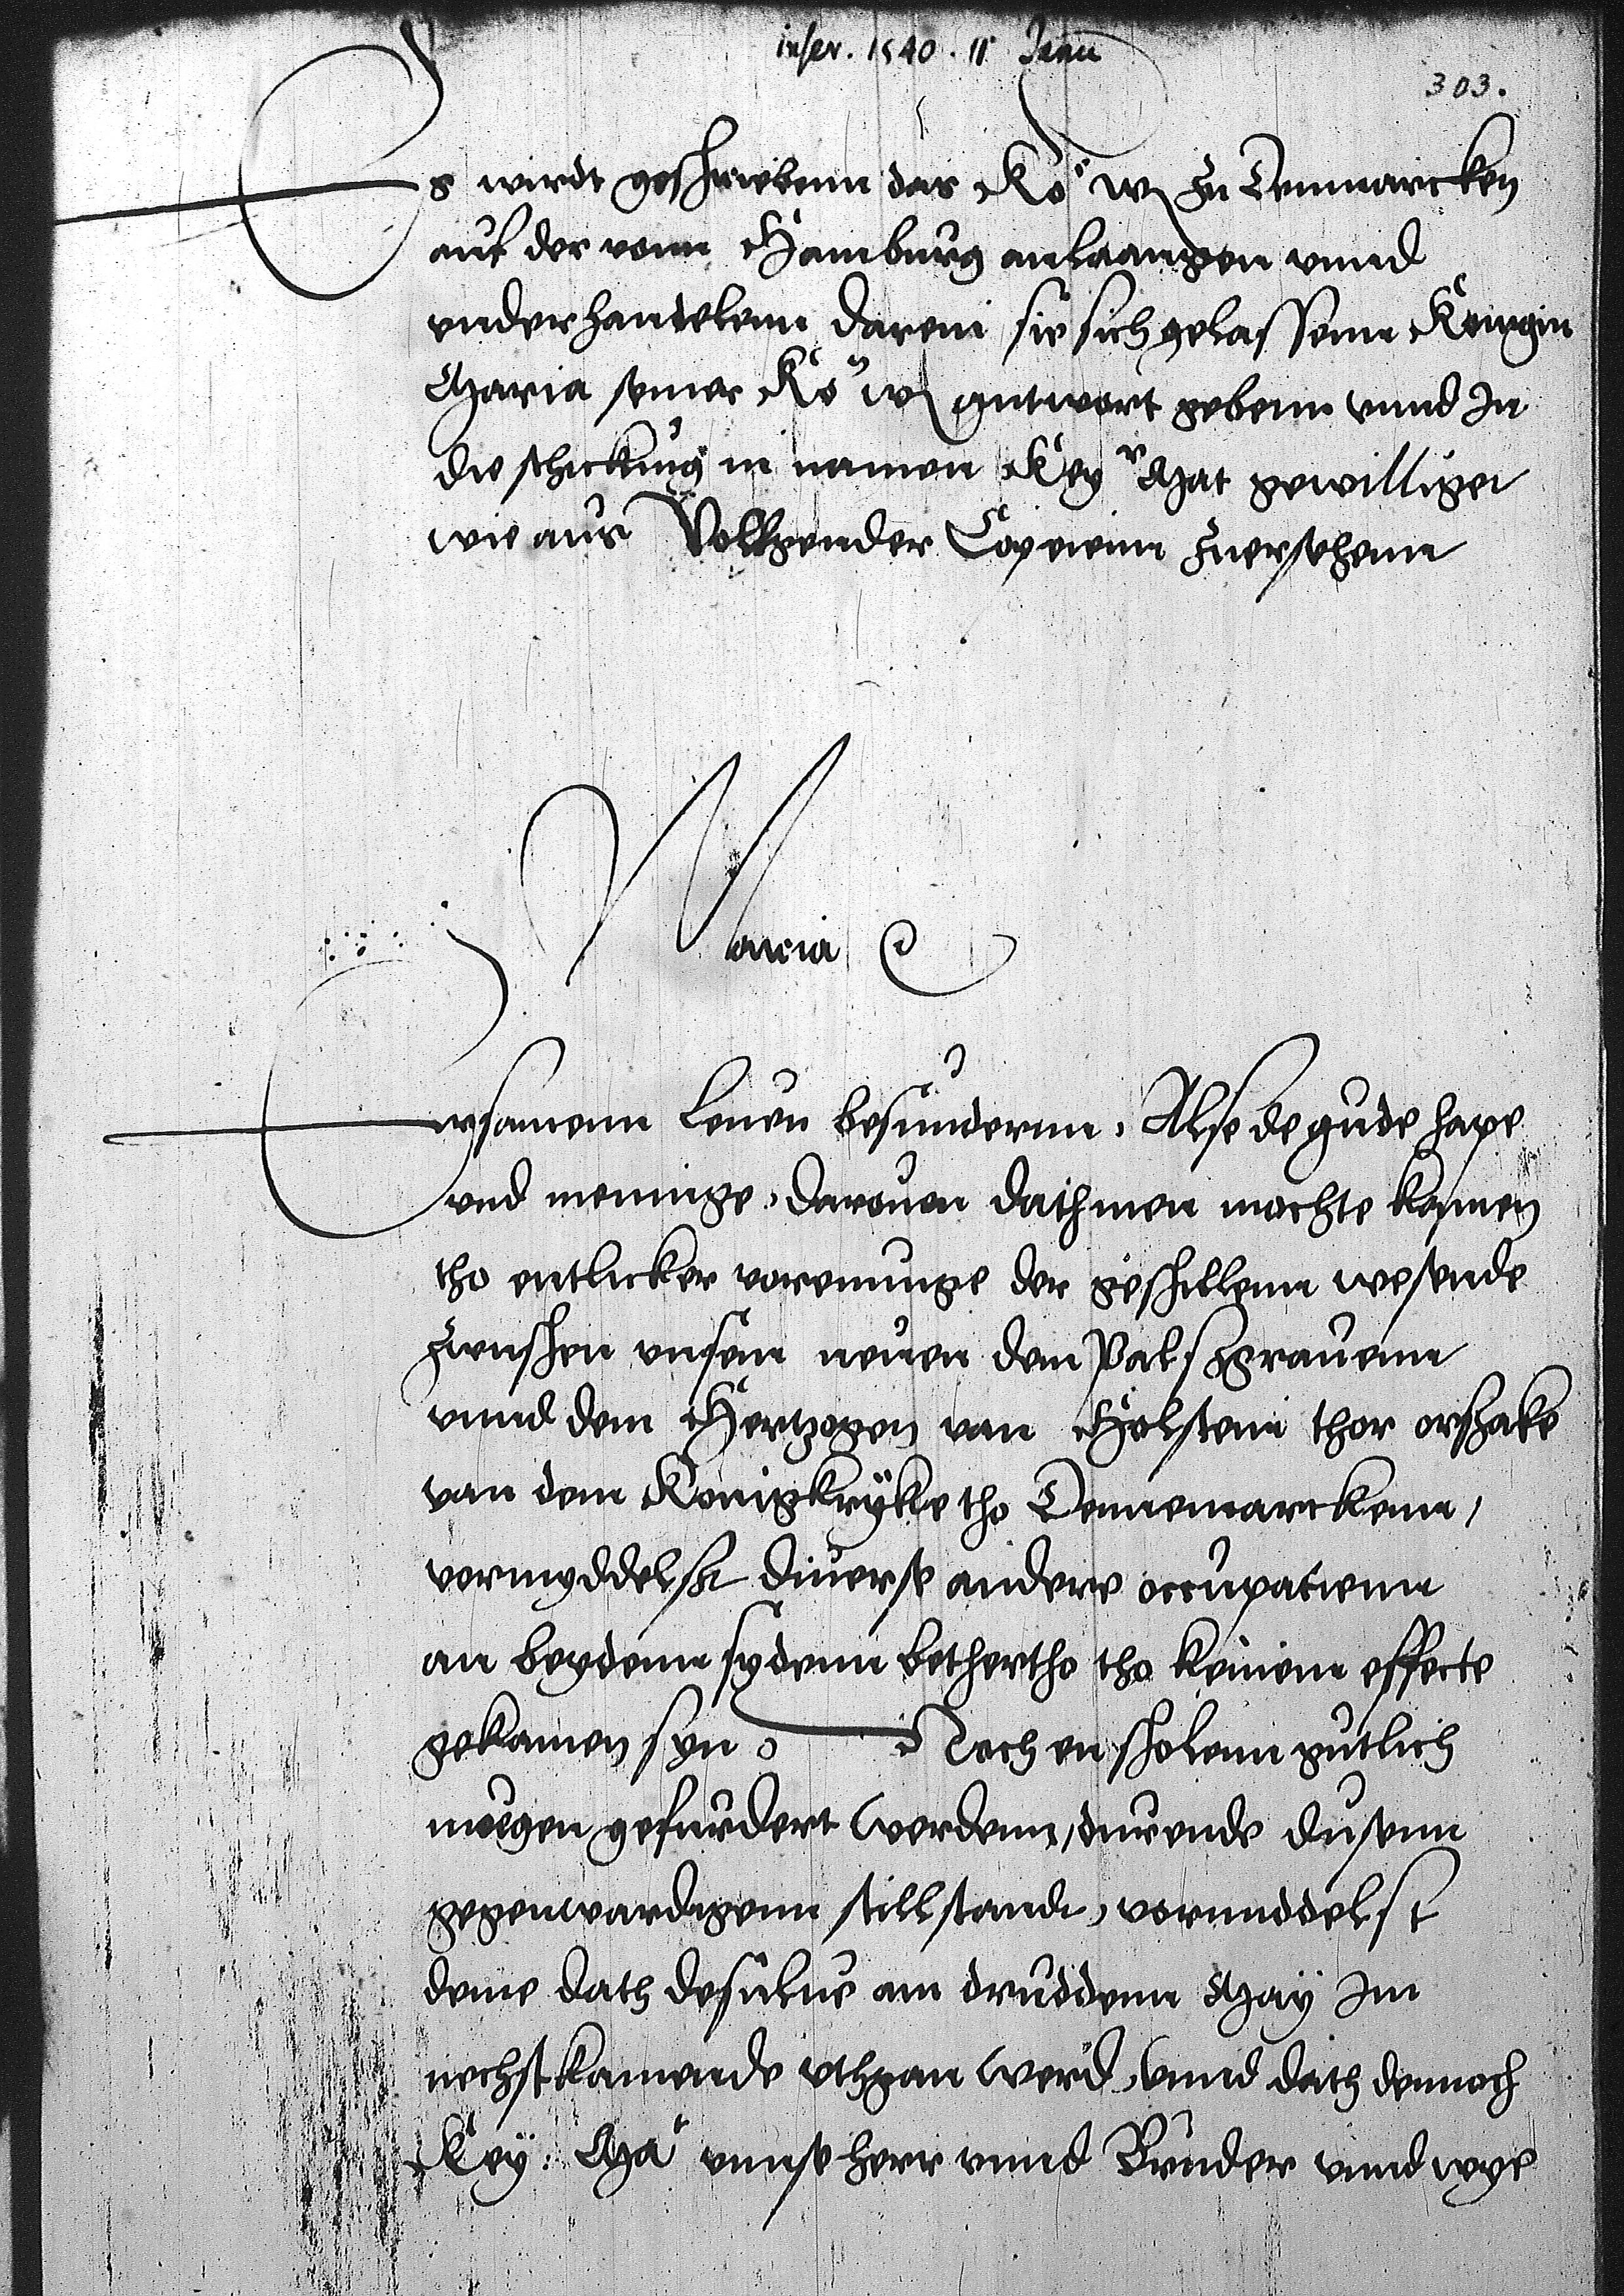 inser. 1540. 11 Janu
303.
Es wirdt geschriebenn das Ko w zu Denmarcken
auf der vonn Hamburg anlaangen vnnd
vnderhandelenn darein sie sich gelassenn Konigin
Maria seiner Ko w antwort gebenn vnnd In
die schickung in namen Key r Mat gewilliget
wie aus Vollgender Copeienn zuersehenn
Maria
Ersamenn leuen besunderenn. Alse de gude hape
vnd meninge, darouen dath men mochte kamen
tho entlicker voreninge der geschillenn wesende
zwuschen vnsem neuen dem Palszgrauenn
vnnd dem Hertzogen van Holstein thor orszake
van dem Konigkryke tho Dennemarckenn,
vormyddelst diuerse andere occupatienn
an beydenn sydenn bethertho tho keinem effecte
gekamen syn Noch en scholenn gutlich
mugen gefurdert werdenn, durende dussenn
gegenwardigenn stillstande, vormiddelst
deme dath desulue am druddenn May Im
nechstkamende vthgan werd, vnnd dath dennoch
Key. Ma vnnse herr vnnd Bruder vnnd wye